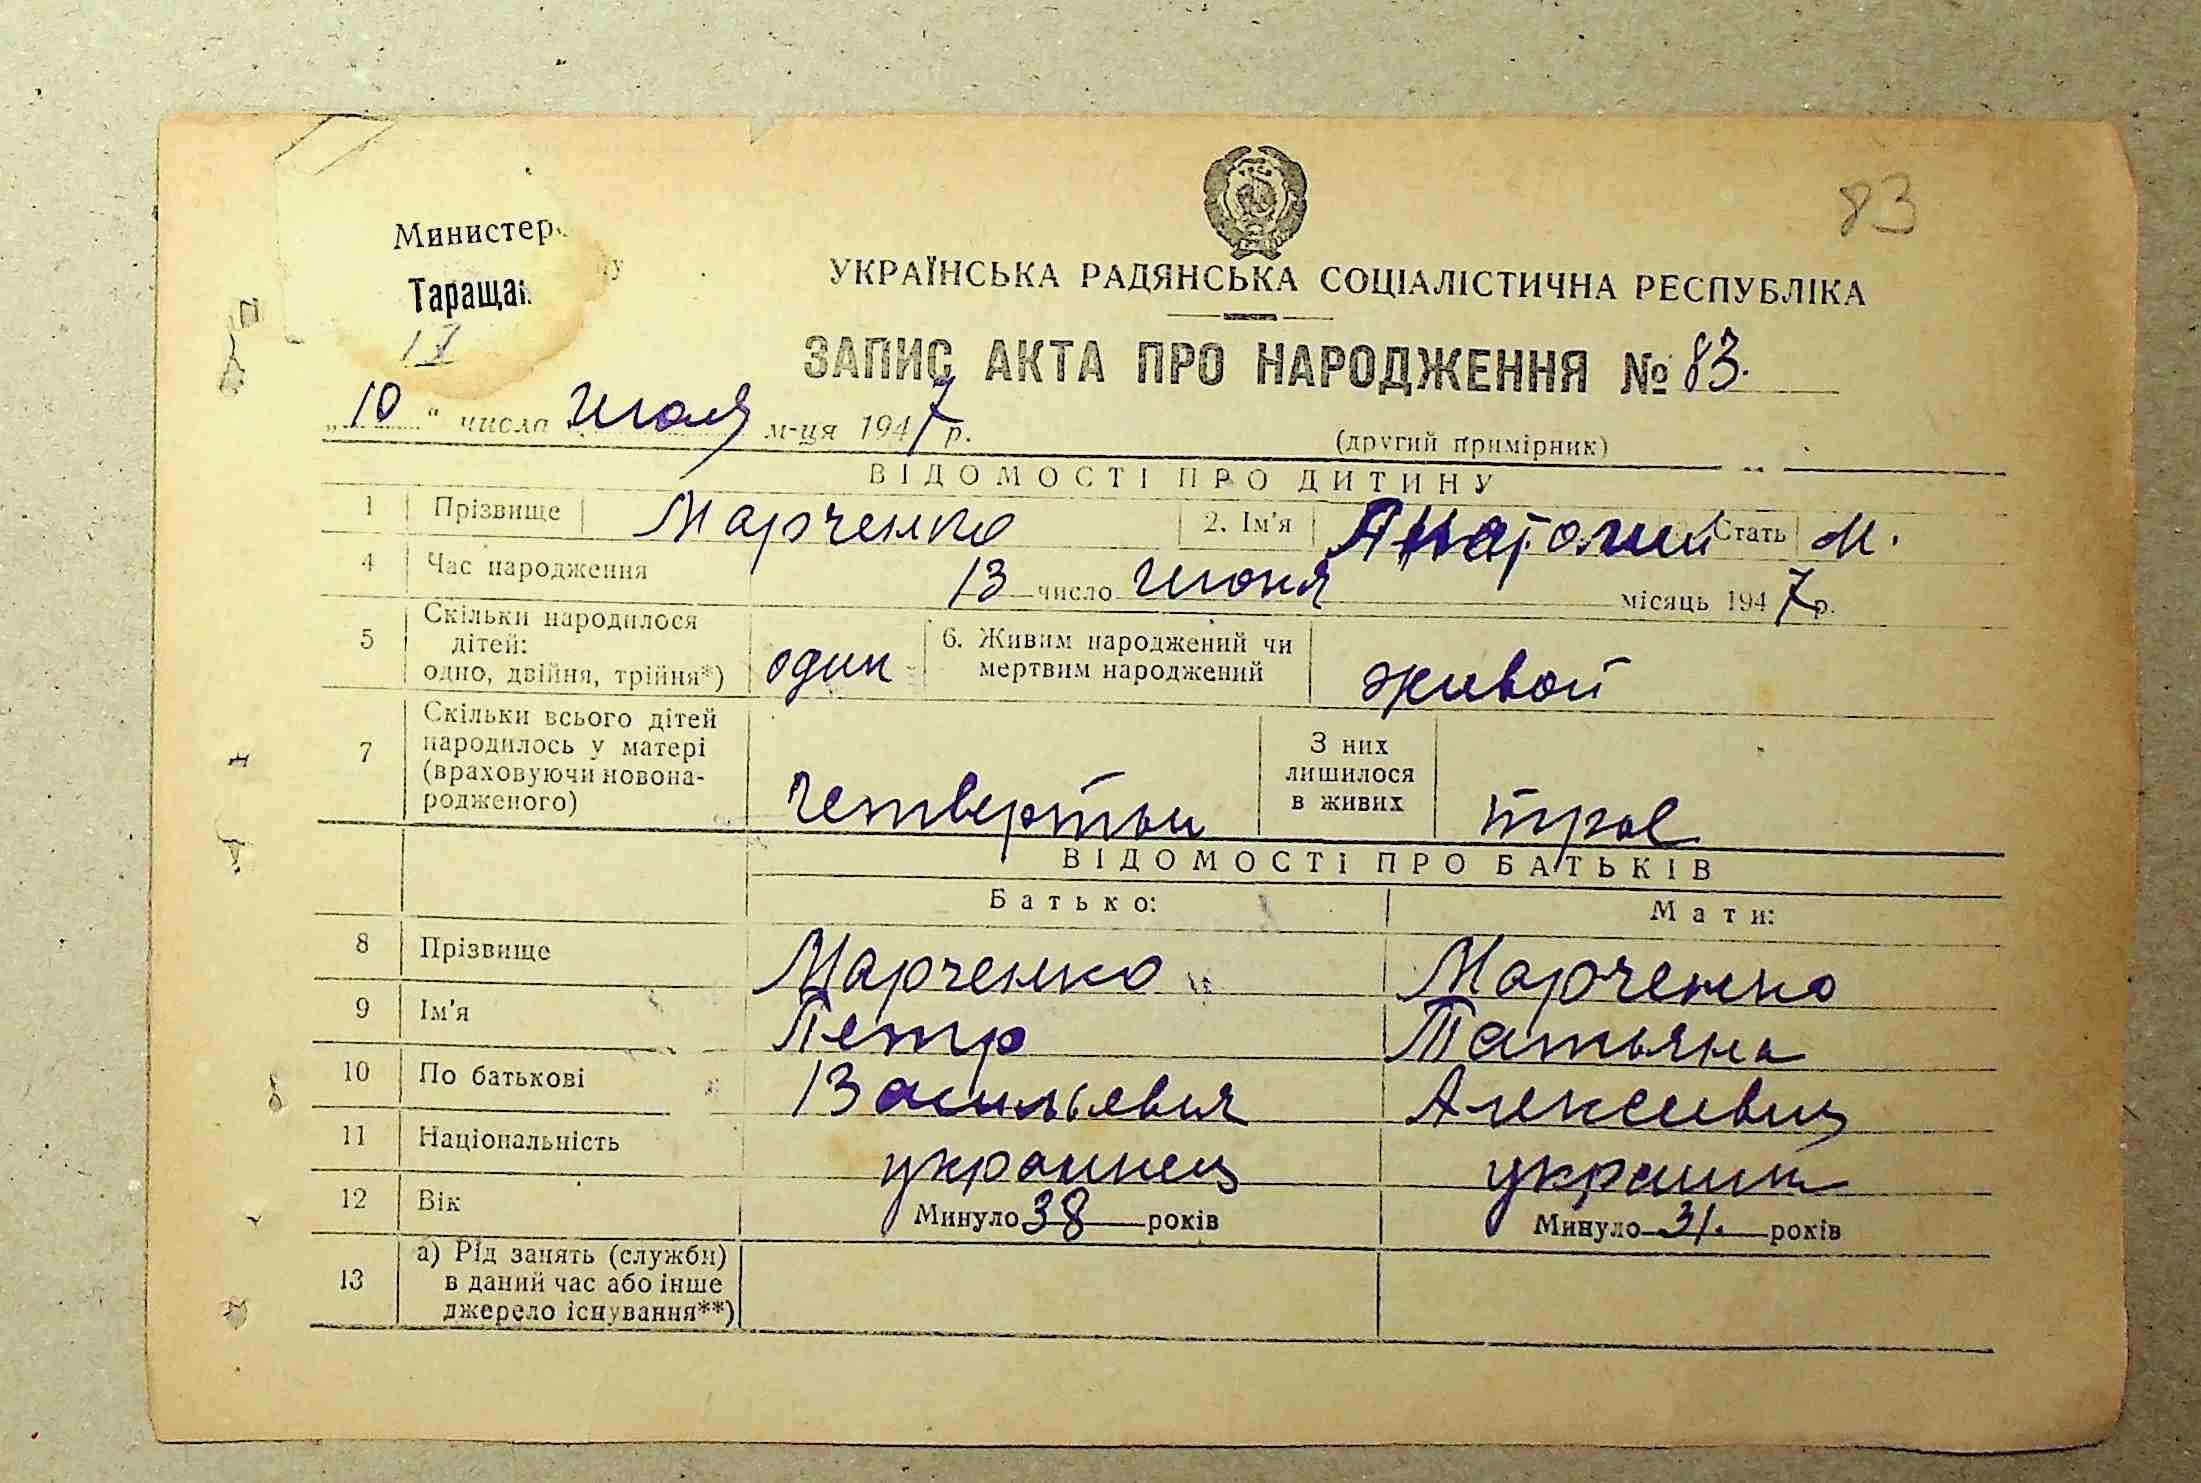 83
Министер
Таращан
УКРАЇНСЬКА РАДЯНСЬКА СОЦІАЛІСТИЧНА РЕСПУБЛІКА
ЗАПИС АКТА ПРО НАРОДЖЕННЯ № 83.
„10“ числа Июля м-ця 1947 р.
(другий примірник)
ВІДОМОСТІ ПРО ДИТИНУ
1 Прізвище Марченко 2. Ім'я Анатолий Стать М.
4 Час народження 13 число Июня місяць 1947 р.
5 Скільки народилося
дітей:
одно, двійня, трійня*) один 6. Живим народжений чи
мертвим народжений живой
7 Скільки всього дітей
народилось у матері
(враховуючи новона-
родженого) Четвертый
З них
лишилося
в живих трое
ВІДОМОСТІ ПРО БАТЬКІВ
Батько: Мати:
8 Прізвище Марченко Марченко
9 Ім'я Петр Татьяна
10 По батькові Васильевич Алексеевна
11 Національність украинец украин
12 Вік Минуло 38 років Минуло 31. років
13 а) Рід занять (служби)
в даний час або інше
джерело існування**)